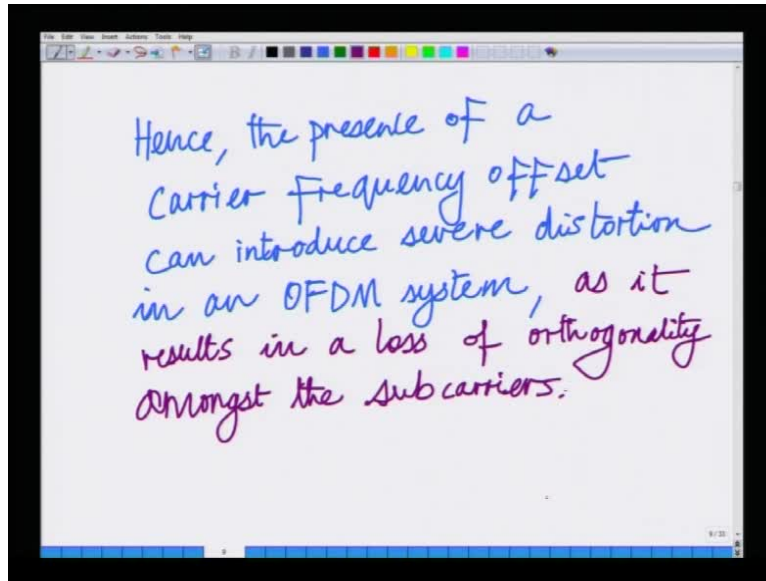 File Edit View Insert Actions Tools Help
Hence, the presence of a
Carrier Frequency offset
can introduce severe distortion
in an OFDM system, as it
results in a loss of orthogonality
amongst the subcarriers.